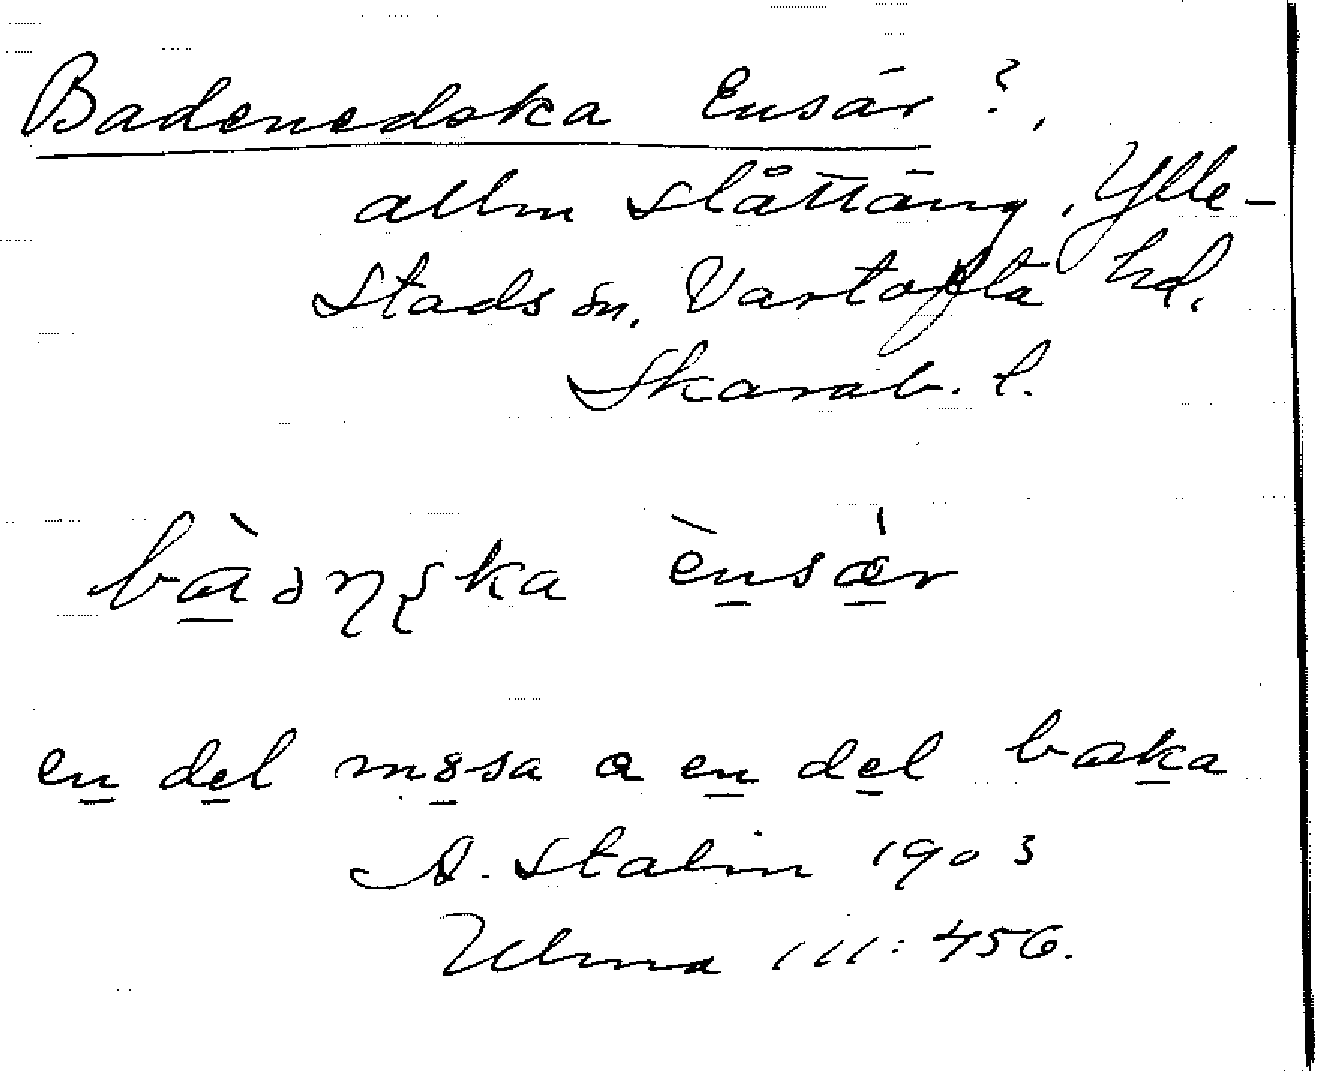 Badenedska Ensär ?,
allm slåttäng, Ylle-
stads sn, Vartofta hd,
Skarab. l.
bàəŋʂka ènsǽr
en del mosa a en del baka
A. Stalin 1903
Ulma 111:456.